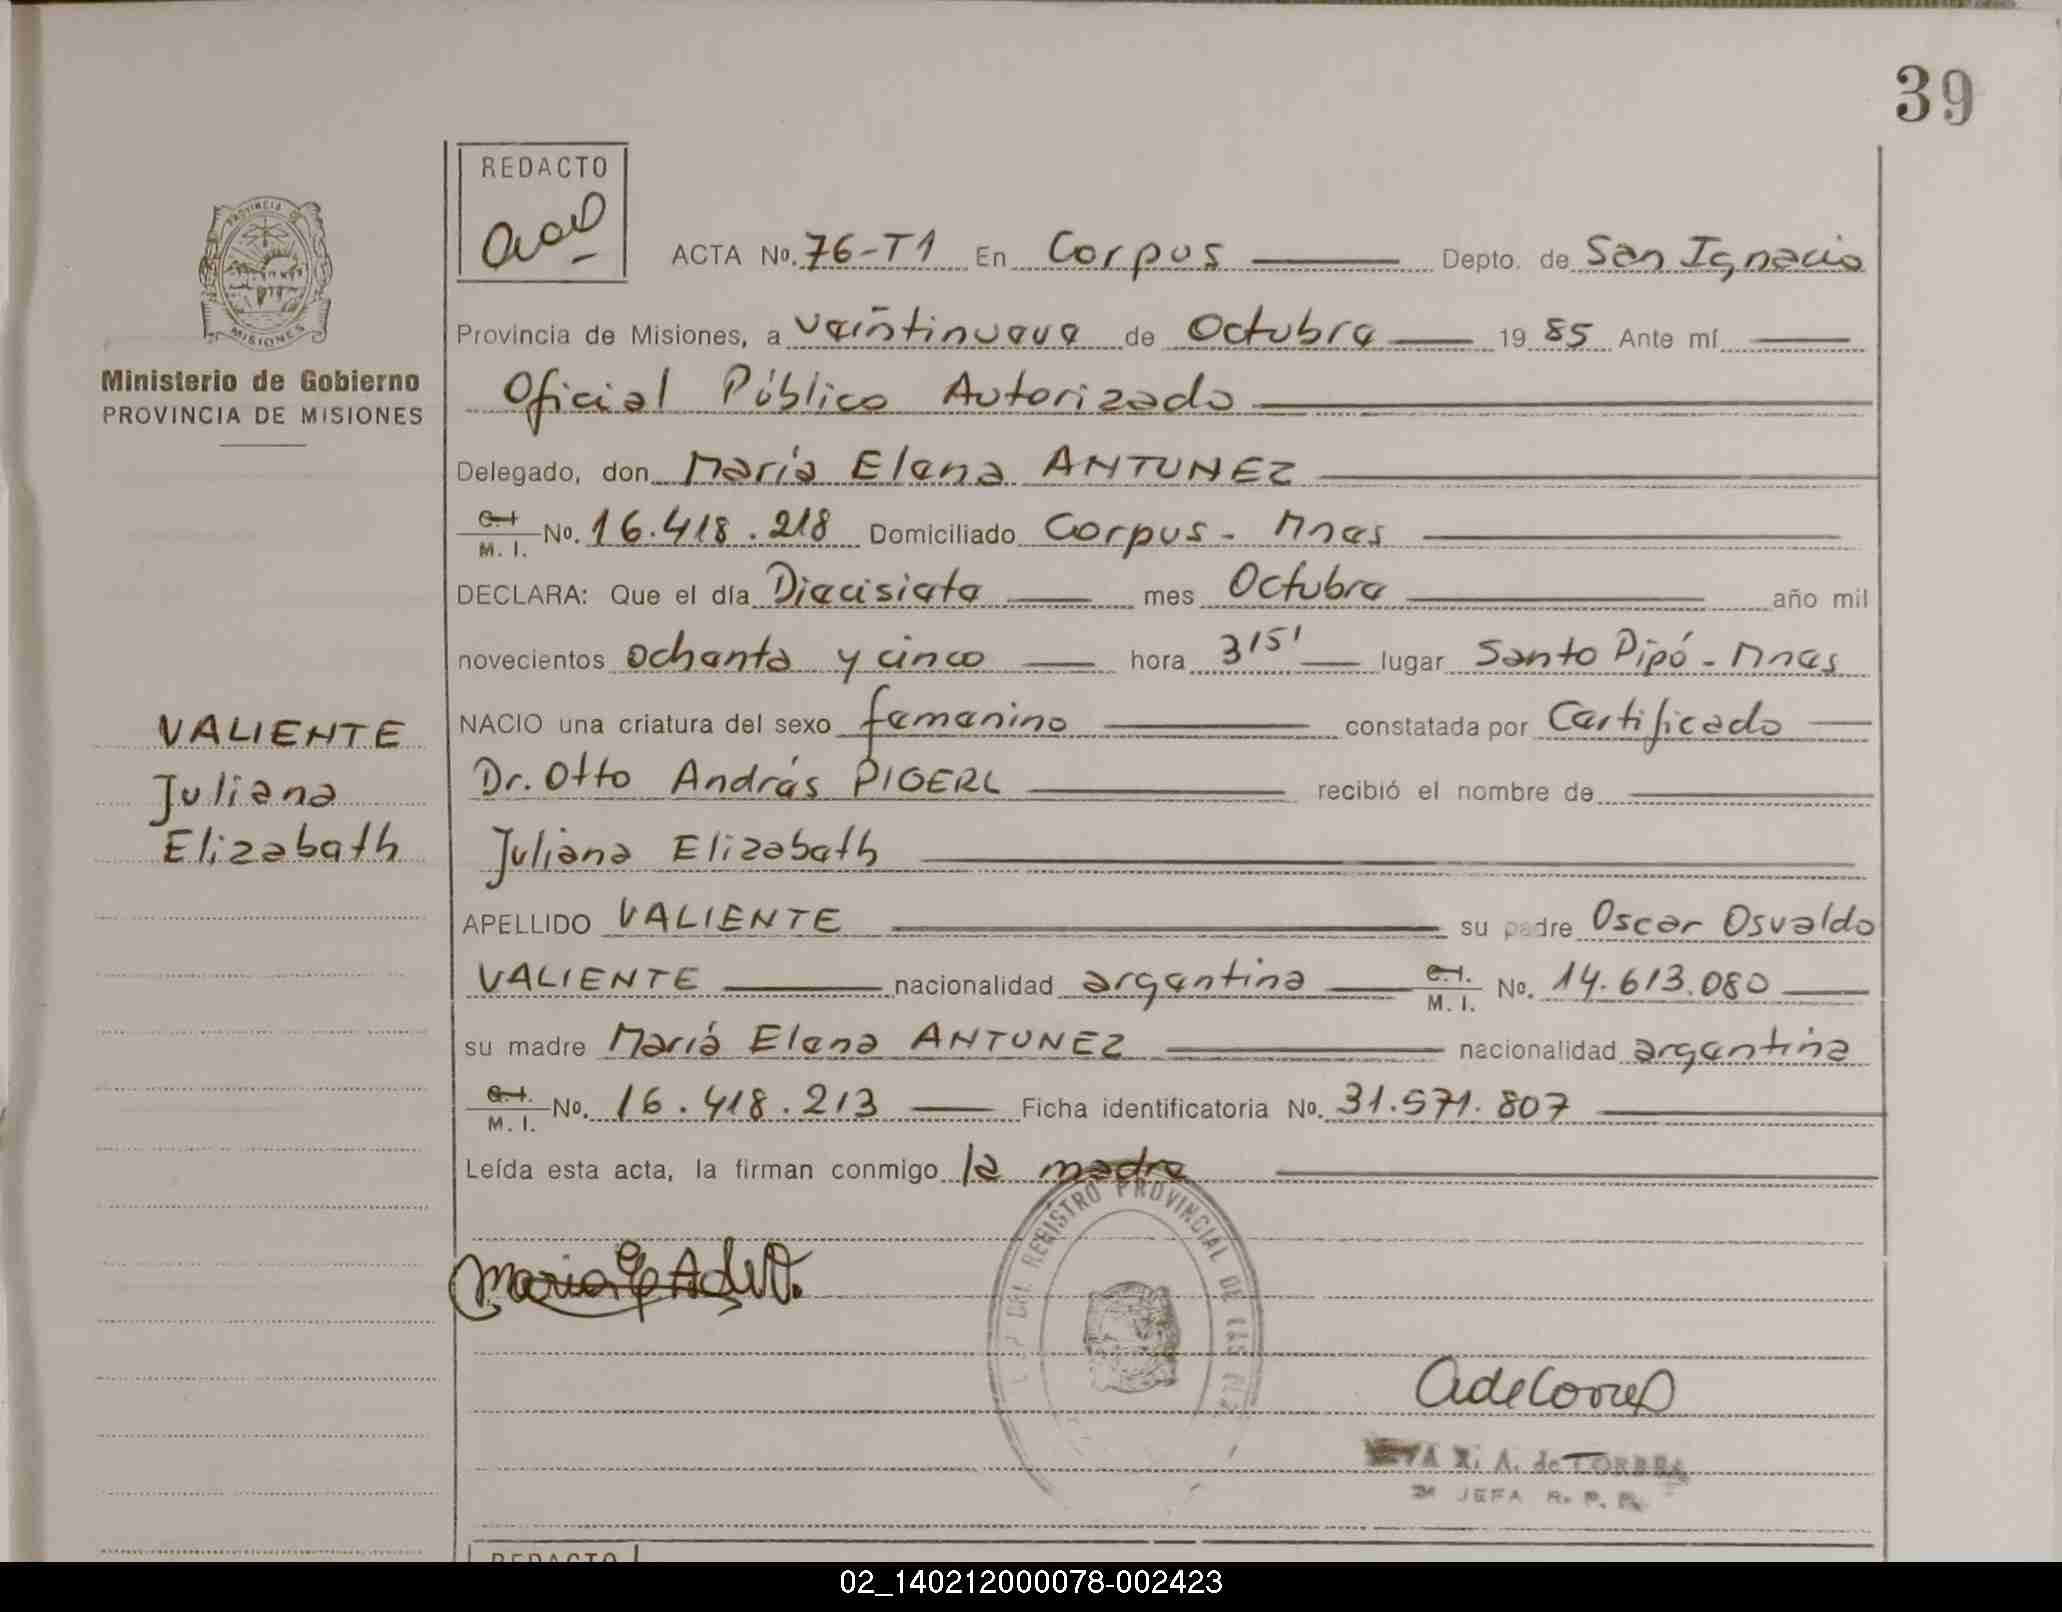 39
REDACTO
ACTA No. 76-T1 En Corpus Depto. de San Ignacio
Provincia de Misiones, a veintinueve de Octubre 1985 Ante mí
Oficial Público Autorizado
Delegado, don María Elena ANTUNEZ
C.I. M. I. No. 16.418.218 Domiciliado Corpus - Mnes
DECLARA: Que el día Diecisiete mes Octubre año mil
novecientos ochenta y cinco hora 3,15' lugar Santo Pipó - Mnes
NACIO una criatura del sexo femenino constatada por Certificado
Dr. Otto Andrés PIGERL recibió el nombre de
Juliana Elizabeth
APELLIDO VALIENTE su padre Oscar Osvaldo
VALIENTE nacionalidad argentina C.I. M. I. No. 14.613.080
su madre María Elena ANTUNEZ nacionalidad argentina
C.I. M. I. No. 16.418.213 Ficha identificatoria No. 31.571.807
Leída esta acta, la firman conmigo la madre
PROVINCIA DE
MISIONES
Ministerio de Gobierno
PROVINCIA DE MISIONES
VALIENTE
Juliana
Elizabeth
DEL REGISTRO PROVINCIAL DE LAS
A. de TORRES
JEFA R. P. P.
REDACTO
02_140212000078-002423